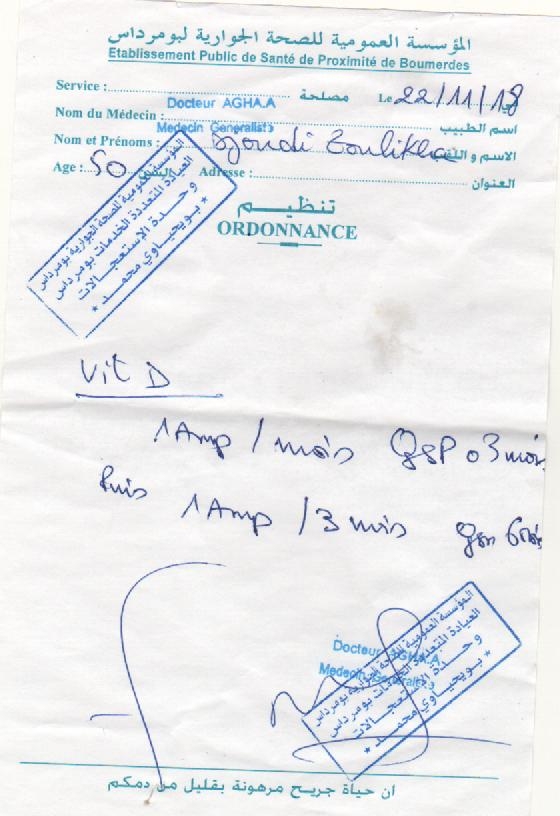 المؤسسة العمومية للصحة الجوارية لبومرداس
Etablissement Public de Santé de Proximité de Boumerdes
Service : مصلحة Le 22/11/18
Docteur AGHA.A
Nom du Médecin : اسم الطبيب
Medecin Generaliste
Nom et Prénoms : Djoudi Zoulikha الاسم و اللقب
Age : 50 السن Adresse : العنوان
المؤسسة العمومية للصحة الجوارية بومرداس
العيادة المتعددة الخدمات بومرداس
وحدة الإستعجالات
* بويحياوي محمد *
تنظيم
ORDONNANCE
Vit D
1 Amp / mois QSP 03 mois
Puis
1 Amp / 3 mois qsp 6 mois
Docteur AGHA.A
Medecin Generaliste
المؤسسة العمومية للصحة الجوارية بومرداس
العيادة المتعددة الخدمات بومرداس
وحدة الإستعجالات
* بويحياوي محمد *
ان حياة جريح مرهونة بقليل من دمكم